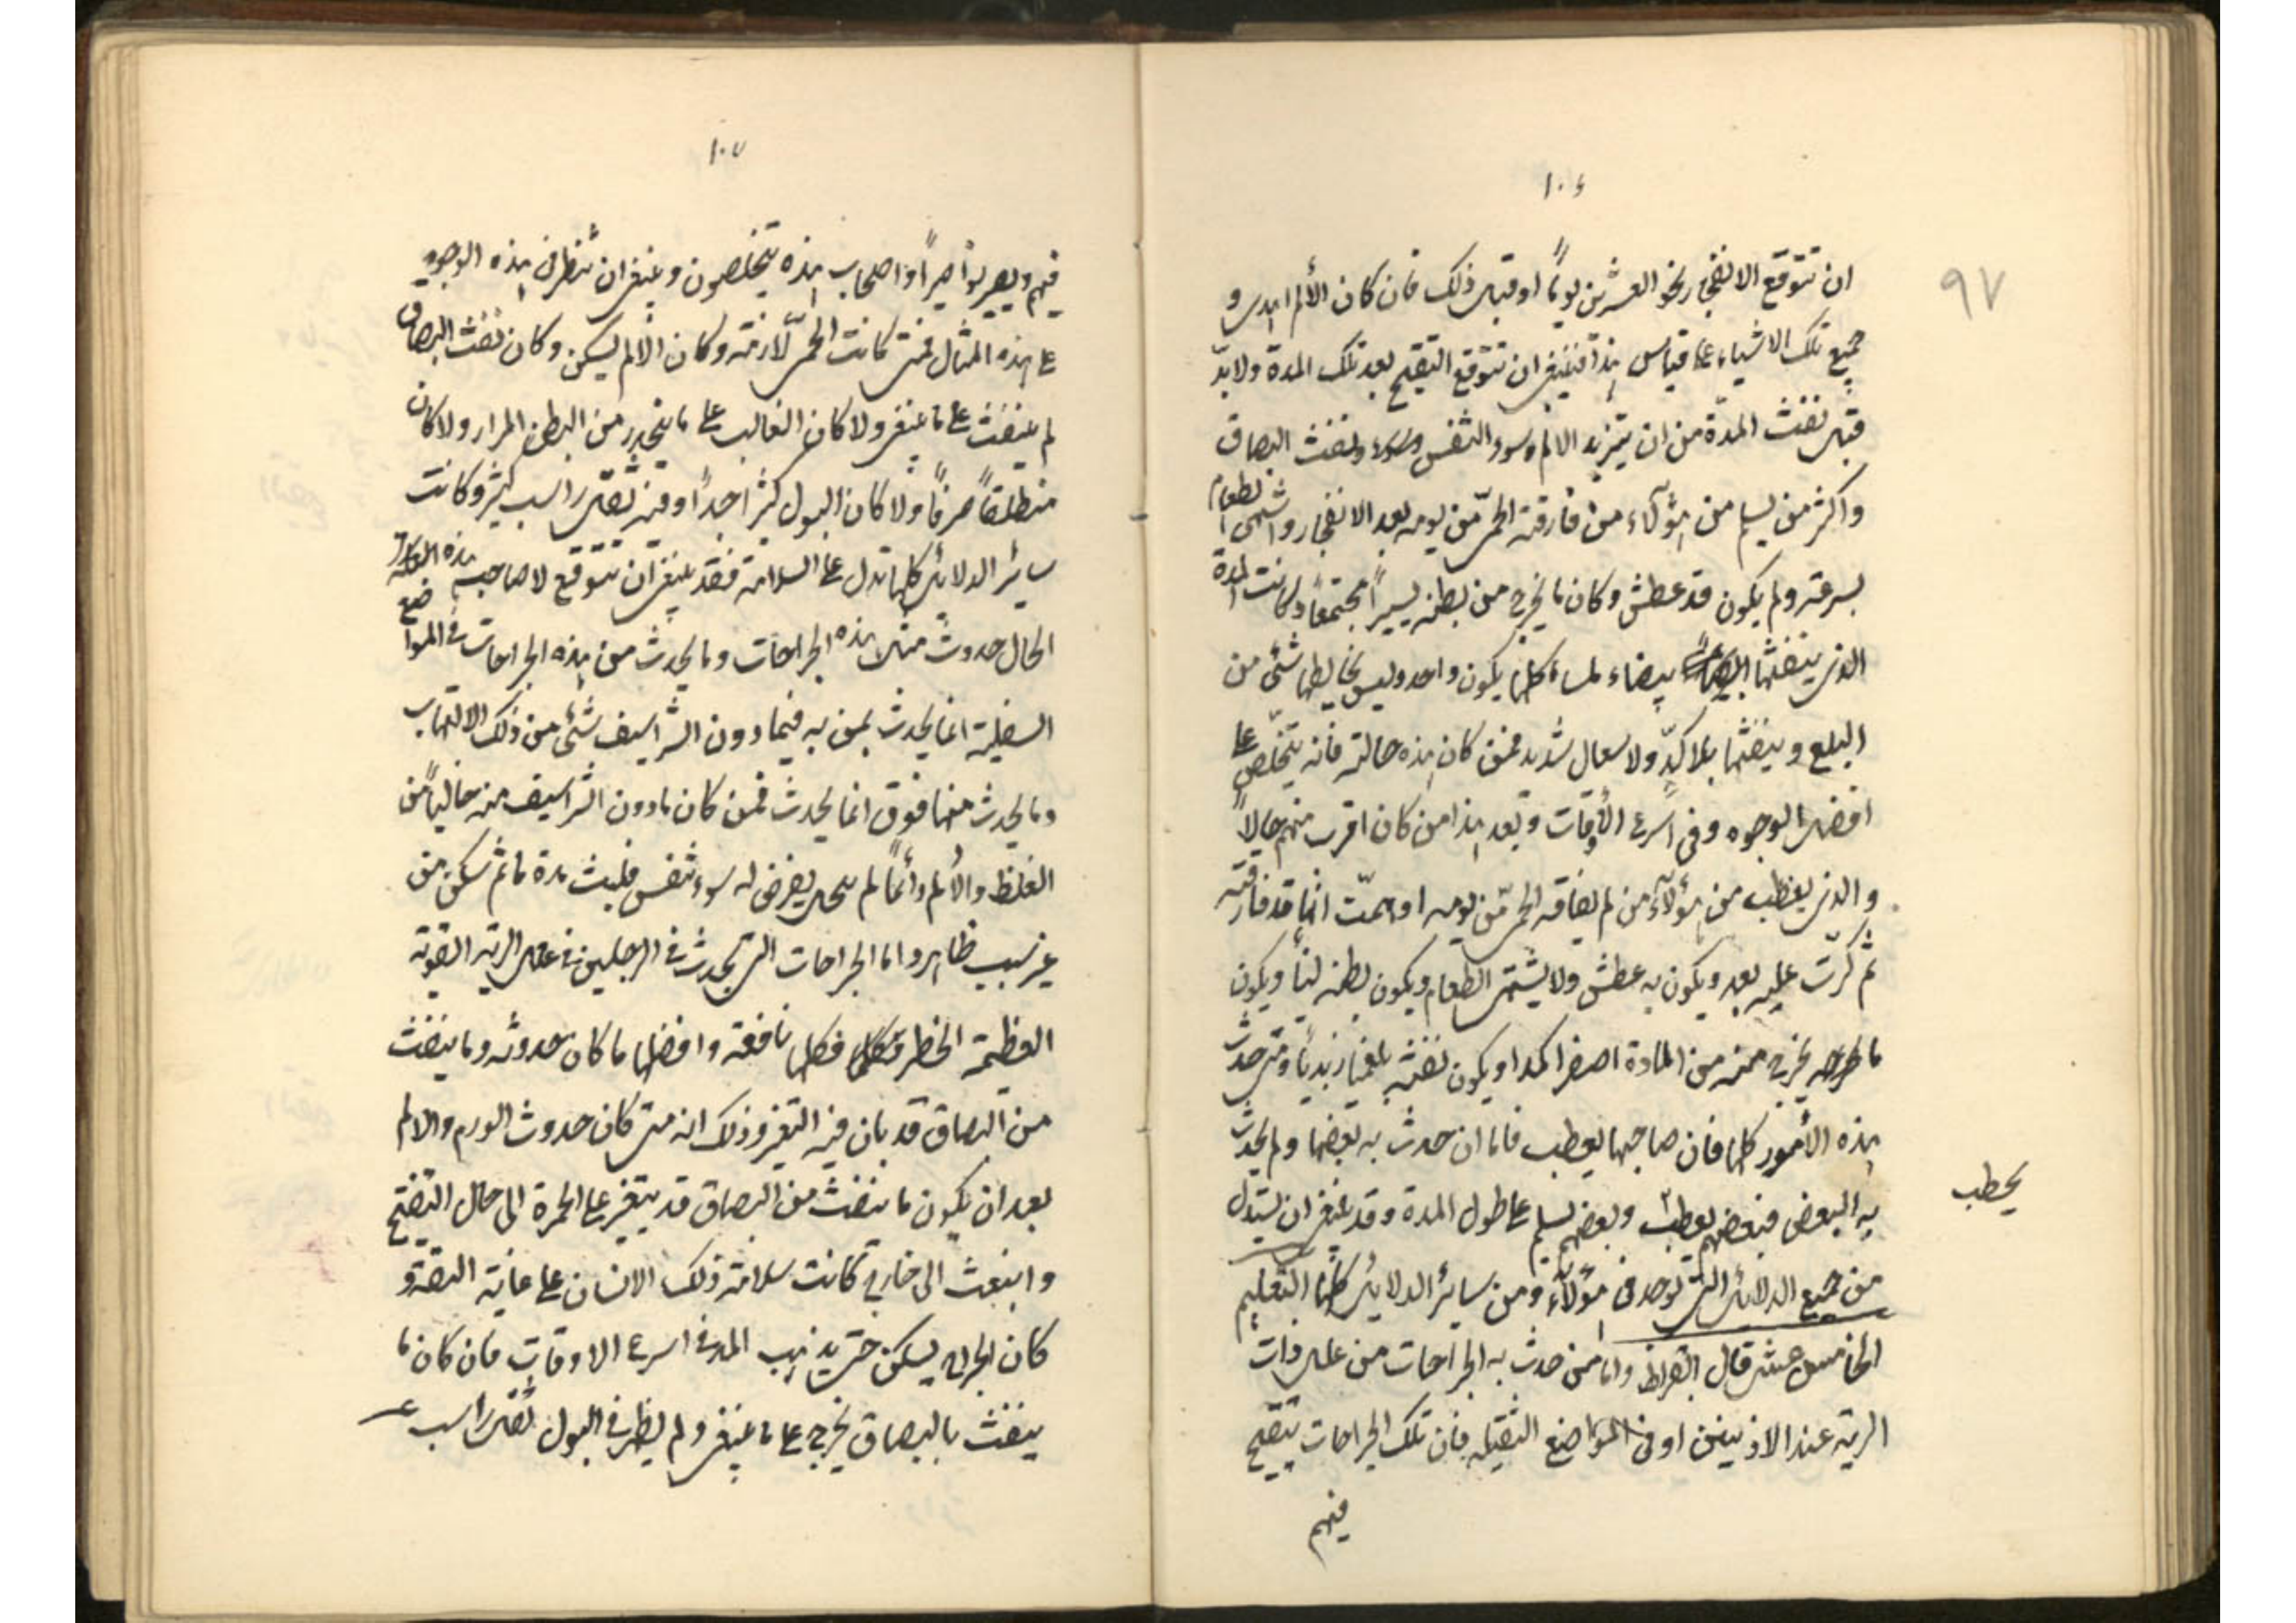 ١٠٤
٩٧
ان تتوقع الانفجار نحو العشرين يوماً او قبل ذلك فان كان الألم اهدى و
جميع تلك الاشياء على قياس هذا فينبغى ان تتوقع التقيح بعد تلك المدة ولا بدّ
قبل نفث المدّة من ان يتزيد الالم وسوء التنفس ونفث البصاق
واكثر من يسلم من هؤلآء من فارقته الحمّى من يومه بعد الانفجار واشتهى الطعام
بسرعة ولم يكون قد عطش وكان ما يخرج من بطنه يسيراً مجتمعاً وكانت المدة
الذى ينفثها بيضاء لمساء كلها يكون واحد وليس يخالطها شئ من
البلغ وينفثها بلا كدّ ولا سعال شديد فمن كان هذه حالته فانه يتخلّص على
افضل الوجوه وفى اسرع الأوقات وبعد هذا من كان اقرب منهم حالاً
والذى يعطب من هؤلآء من لم يفاقه الحمّى من يومه او همّت انها قد فارقته
ثم كرّت عليه بعد ويكون به عطش ولا يشتهى الطعام ويكون بطنه ليناً ويكون
ما يخرج منه من المادة اصفرا كمدا ويكون نفثه بلغميا زبدياً ومتى حدث
هذه الأمور كلها فان صاحبها يعطب فاما ان حدث به بعضها ولم يحدث
به البعض فبعضهم يعطب وبعضهم يسلم على طول المدة وقد ينبغى ان يستدل
يحطب
من جميع الدلائل التى توجد فى هؤلآء ومن سائر الدلايل كلها التعليم
الخامس عشر قال ابقراط واما من حدث به الجراحات من علل ذات
الرية عند الاذنين او فى المواضع الثقيله فان تلك الجراحات يتقيح
فيهم
١٠٧
فيهم ويصير نواصيراً واصحاب هذه يتخلصون وينبغى ان تنظر فى هذه الوجوه
على هذه المثال فمتى كانت الحمّى لّازمة وكان الألم ليسكن وكان نفث البصاق
لم ينفث على ما ينبغى ولا كان الغالب على ما يتحدر من البطن المرار ولا كان
منطلقاً صرفاً ولا كان البول كثيراً جداً وفيه ثقل راسب كثير وكانت
سائر الدلائل كلها تدل على السلامة فقد ينبغى ان تتوقع لاصاحب هذه
الحال حدوث مثل هذه الجراحات وما يحدث من هذه الجراحات فى المواضع
السفلية انما يحدث بمن به فيما دون الشراسيف شئ من ذلك الالتهاب
وما يحدث منها فوق انما يحدث فمن كان ما دون الشراسيف منه خالياً من
الغلظ والألم دائماً لم يعرض له سوء تنفس فلبث مدة ما ثم سكن من
غير سبب ظاهر واما الجراحات التى تحدث فى الرجلين فى علل الرية القوية
العظيمة الخطر فكلها نافعة وافضلها ما كان حدوثه وما ينفث
من البصاق قد بان فيه التغير وذلك انه متى كان حدوث الورم والالم
بعد ان يكون ما ينفث من البصاق قد يتغير على الحمرة الى حال التقيح
وانبعث الى خارج كانت سلامة ذلك الانسان على غاية الثقة و
كان الجراح يسكن حتى يذهب المدة فى اسرع الاوقات فان كان ما
ينفث بالبصاق يخرج على ما ينبغى ولم يظهر فى البول ثقل راسب